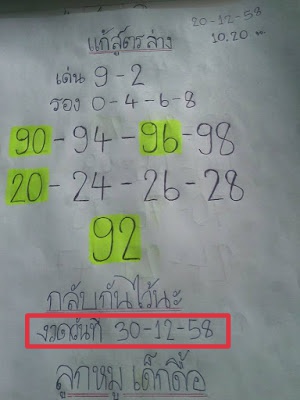 20-12-58
10.20 น.
แก้สูตรล่าง
เด่น 9-2
รอง 0-4-6-8
90-94-96-98
20-24-26-28
92
กลับกันไว้นะ
งวดวันที่ 30-12-58
ลูกหมู เด็กดื้อ